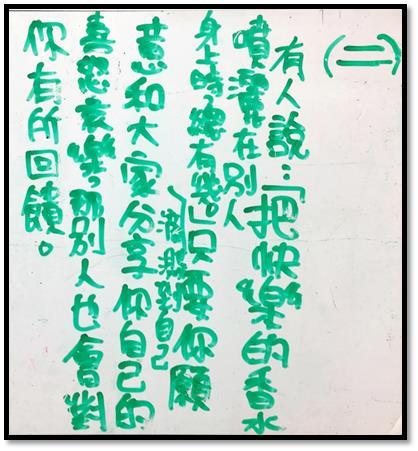 (二)
有人說:「把快樂的香水
噴灑在別人
身上時,總有些」只要你願
到自己
意和大家分享你自己的
喜怒哀樂,那別人也會對
你有所回饋。